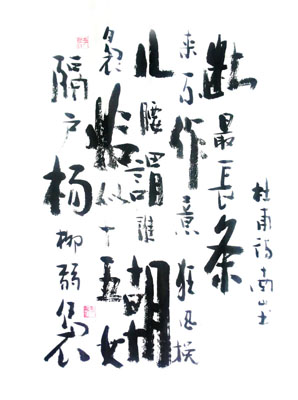 隔户杨柳弱袅
袅恰似十五女
儿腰謂誰朝
来不作意狂风挽
断最長条
杜甫诗南山